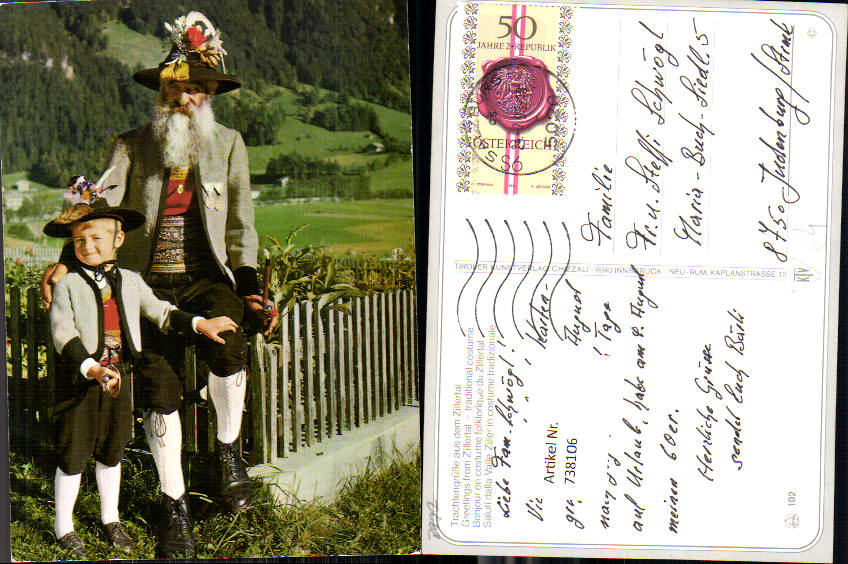 50
JAHRE 2. REPUBLIK
ÖSTERREICH
S6
5020
Familie
Fr. u. Steffi Schwögl
Maria-Buch-Siedl. 5
8750 Judenburg/Stmk
TIROLER KUNSTVERLAG CHIZZALI · 6040 INNSBRUCK NEU-RUM, KAPLANSTRASSE 13
KIV
Trachtengrüße aus dem Zillertal
Greetings from Zillertal – traditional costume
Bonjour en costume folklorique du Zillertal
Saluti dalla Valle Ziller in costume tradizionale
Liebe Fam. Schwögl!
Karten-
August
Tage
auf Urlaub, habe am 8. August
meinen 60er.
Herzliche Grüsse
sendet Euch
Artikel Nr.
738106
102
©